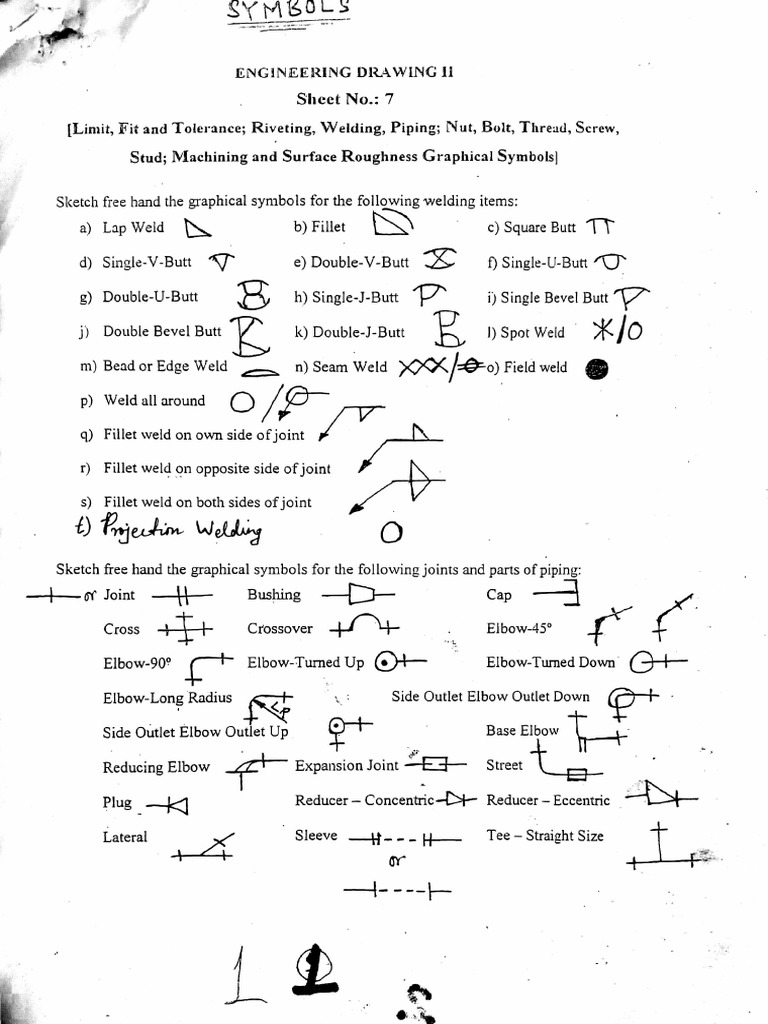 SYMBOLS
ENGINEERING DRAWING II
Sheet No.: 7
[Limit, Fit and Tolerance; Riveting, Welding, Piping; Nut, Bolt, Thread, Screw,
Stud; Machining and Surface Roughness Graphical Symbols]
Sketch free hand the graphical symbols for the following welding items:
a) Lap Weld b) Fillet c) Square Butt
d) Single-V-Butt e) Double-V-Butt f) Single-U-Butt
g) Double-U-Butt h) Single-J-Butt i) Single Bevel Butt
j) Double Bevel Butt k) Double-J-Butt l) Spot Weld
m) Bead or Edge Weld n) Seam Weld o) Field weld
p) Weld all around
q) Fillet weld on own side of joint
r) Fillet weld on opposite side of joint
s) Fillet weld on both sides of joint
t) Projection Welding
Sketch free hand the graphical symbols for the following joints and parts of piping:
or Joint Bushing Cap
Cross Crossover Elbow-45°
Elbow-90° Elbow-Turned Up Elbow-Turned Down
Elbow-Long Radius Side Outlet Elbow Outlet Down
Side Outlet Elbow Outlet Up Base Elbow
Reducing Elbow Expansion Joint Street
Plug Reducer – Concentric Reducer – Eccentric
Lateral Sleeve Tee – Straight Size
or
1 1